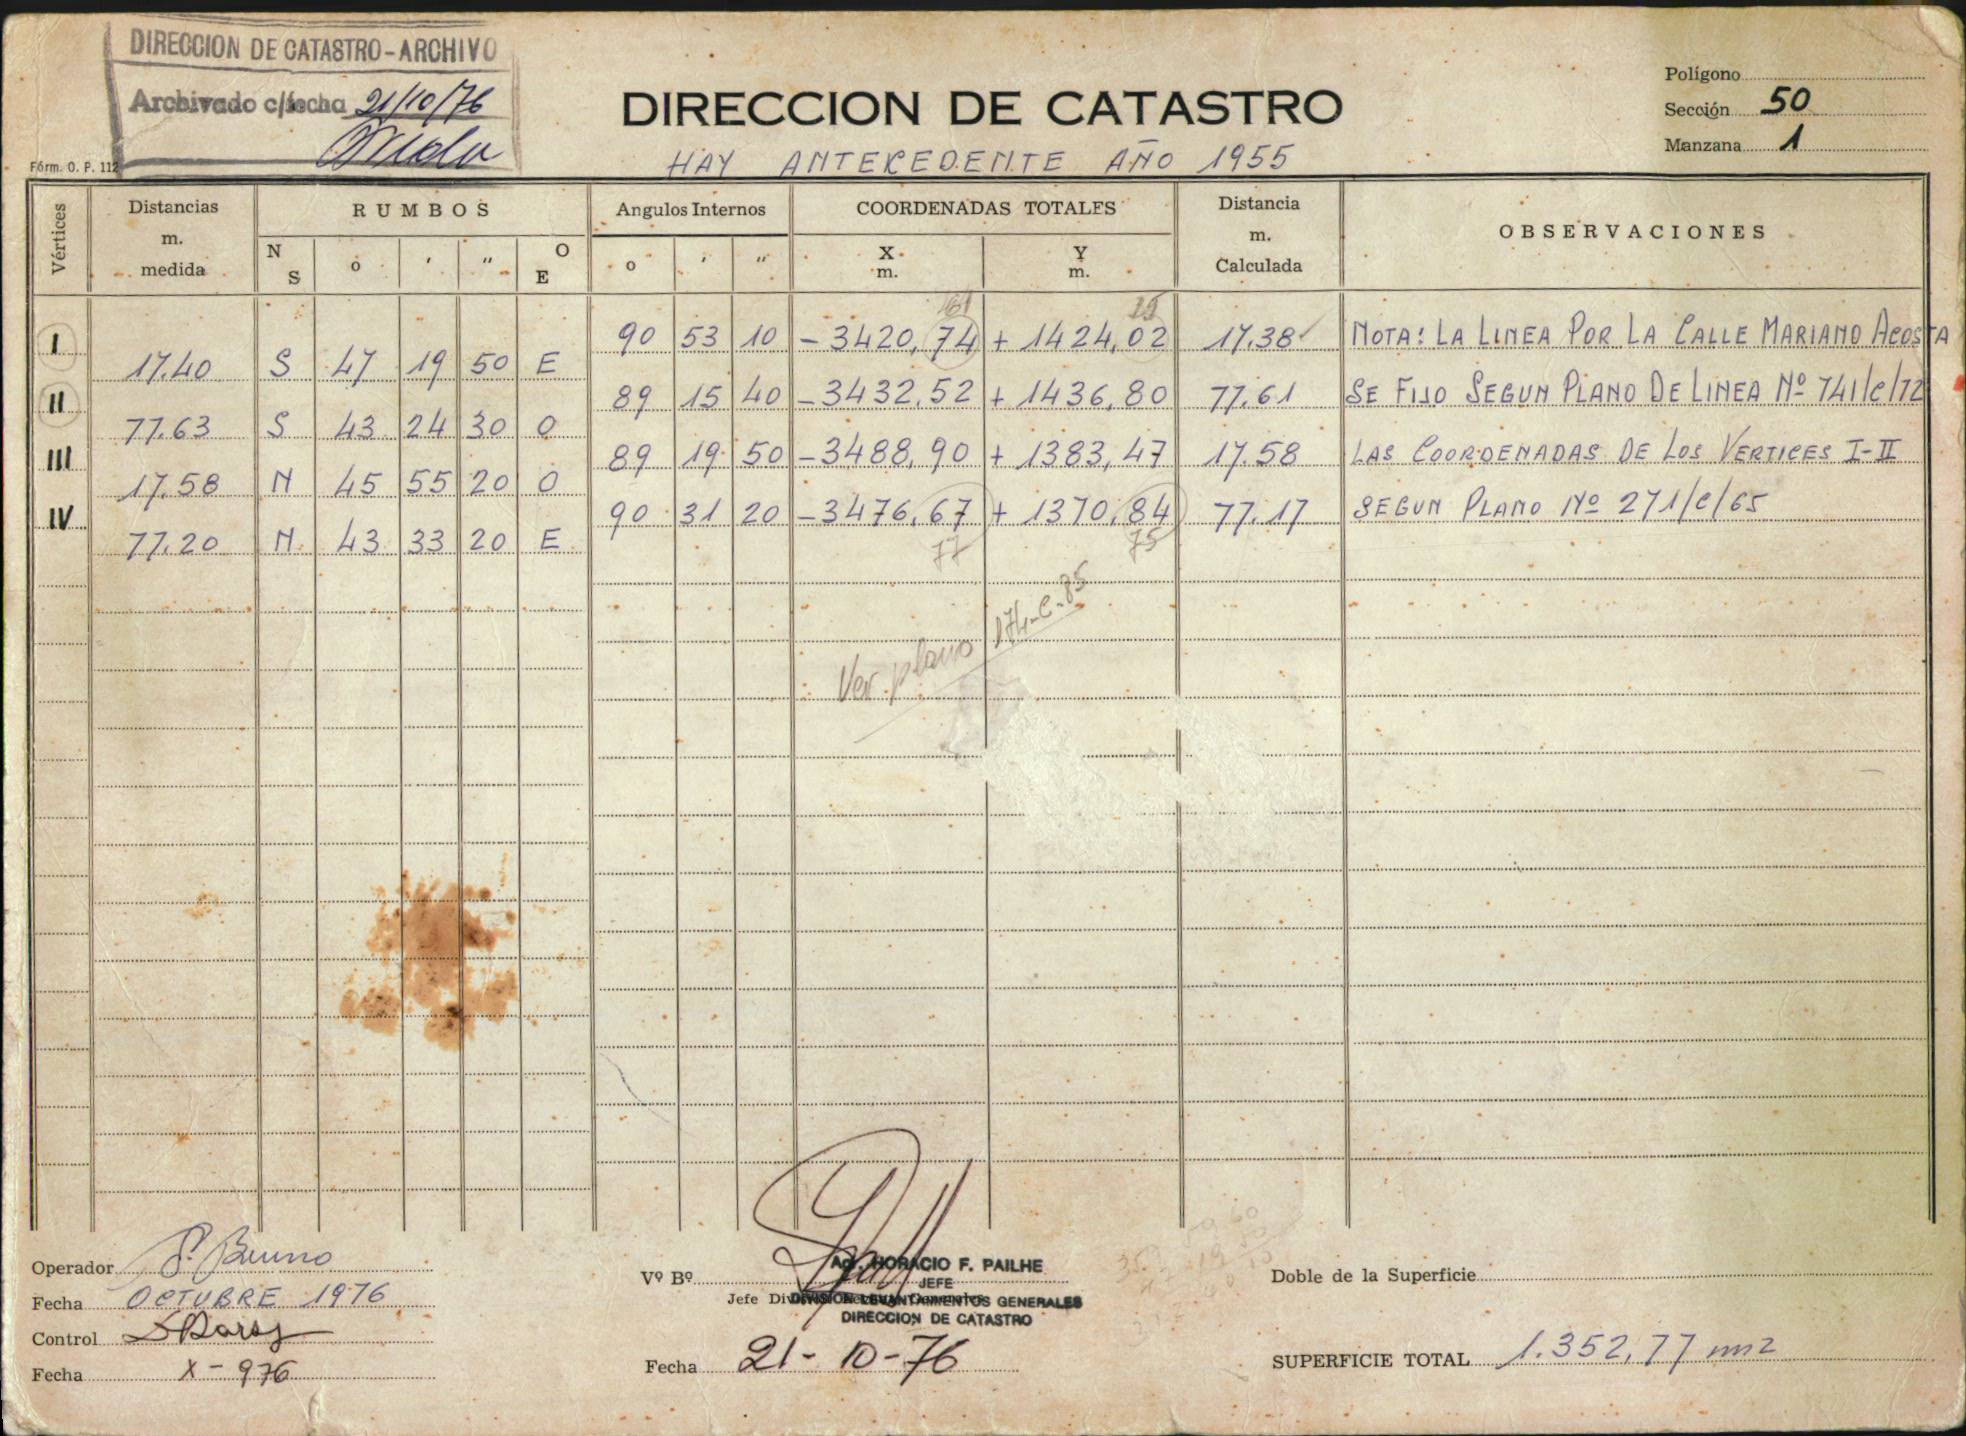 DIRECCION DE CATASTRO - ARCHIVO
Archivado c/fecha 21/10/76
Fórm. O. P. 112
DIRECCION DE CATASTRO
HAY ANTECEDENTE AÑO 1955
Polígono
Sección 50
Manzana 1
Vértices Distancias m. medida RUMBOS N S o ' " O E Angulos Internos o ' " COORDENADAS TOTALES X m. Y m. Distancia m. Calculada OBSERVACIONES
61 25
I 90 53 10 - 3420,74 + 1424,02 17.38 NOTA: LA LINEA POR LA CALLE MARIANO ACOSTA
17.40 S 47 19 50 E
II 89 15 40 - 3432,52 + 1436,80 77.61 SE FIJO SEGUN PLANO DE LINEA Nº 741/C/72
77.63 S 43 24 30 O
III 89 19 50 - 3488,90 + 1383,47 17.58 LAS COORDENADAS DE LOS VERTICES I-II
17.58 N 45 55 20 O
IV 90 31 20 - 3476,67 + 1370,84 77.17 SEGUN PLANO Nº 271/C/65
77.20 N 43 33 20 E
77 75
Ver plano 174-C-85
Operador P. Bruno
Fecha OCTUBRE 1976
Control
Fecha X-976
Vº Bº
HORACIO F. PAILHE
JEFE
DIVISION LEVANTAMIENTOS GENERALES
DIRECCION DE CATASTRO
Fecha 21-10-76
Doble de la Superficie
SUPERFICIE TOTAL 1.352,77 m2